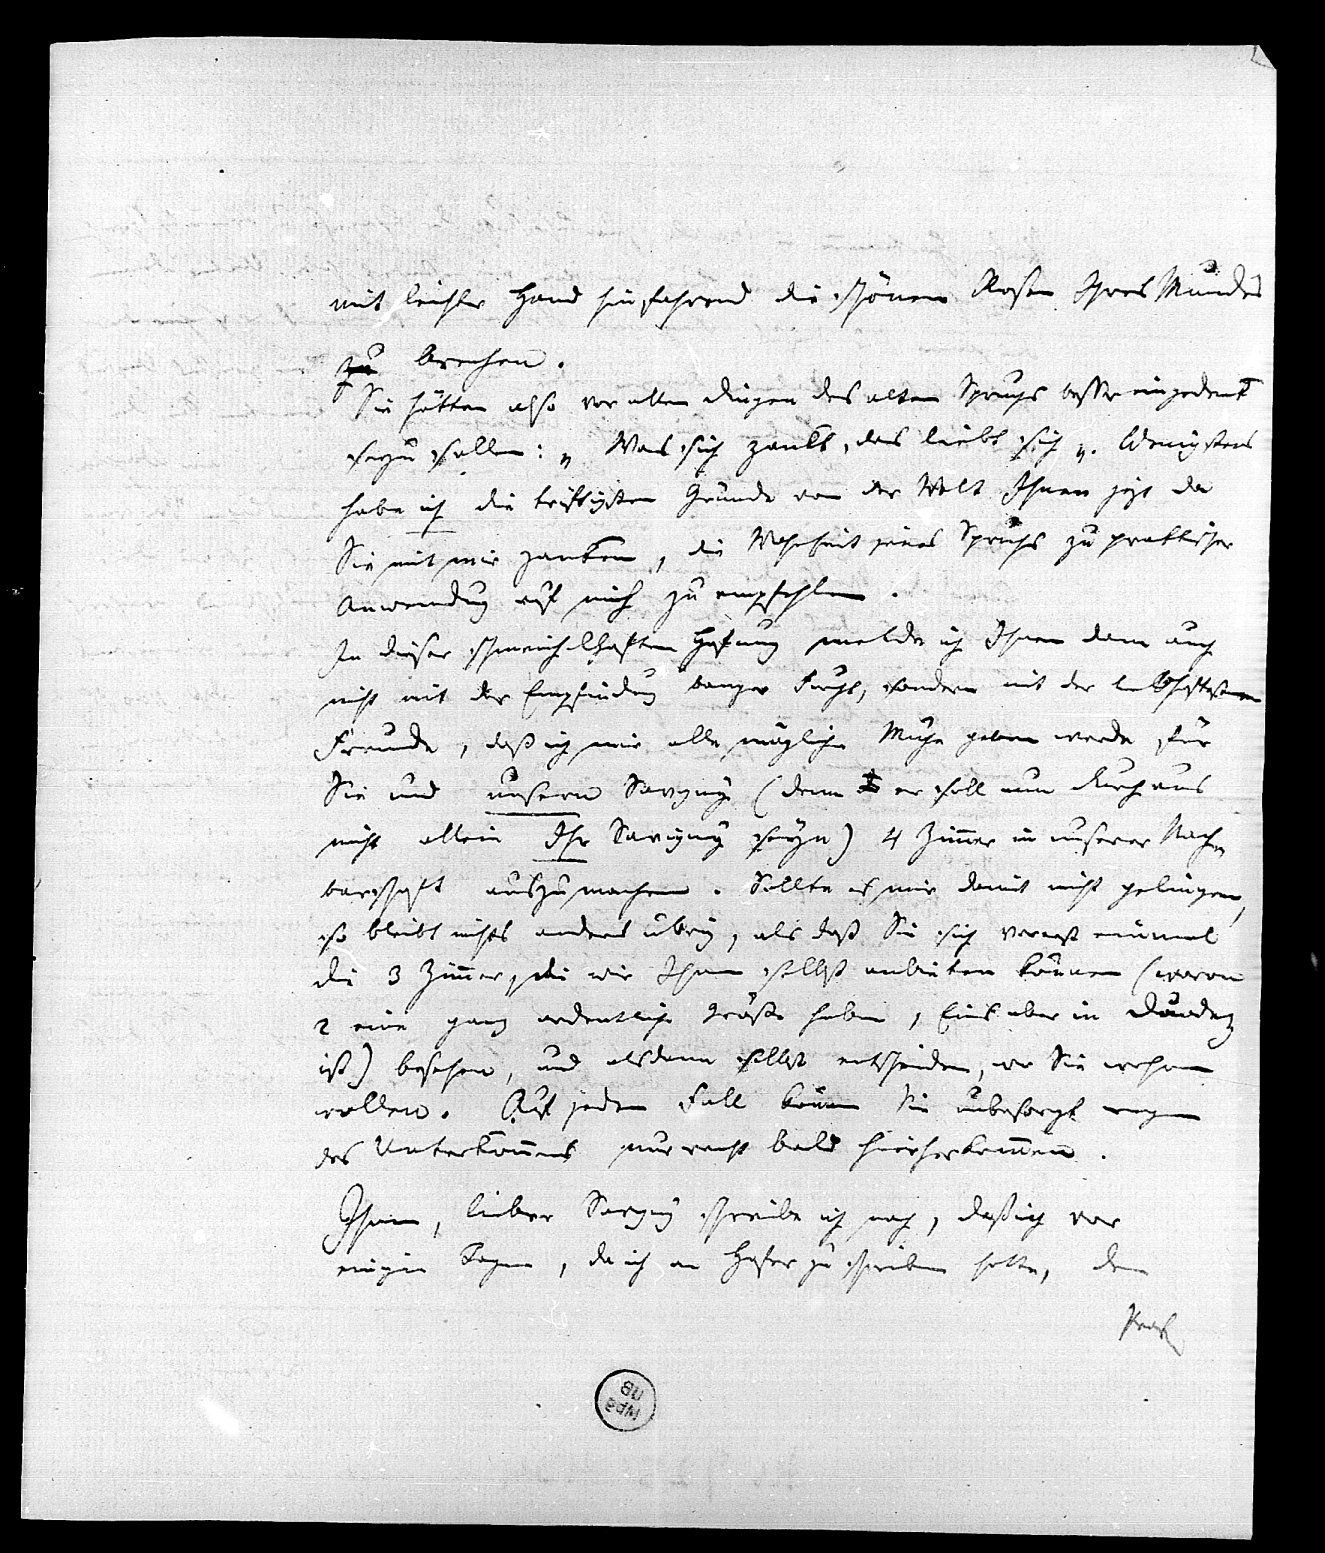 mit leichter Hand hinfahrend die schönen Rosen Ihres Mundes
zu brechen.
Sie hätten also vor allen Dingen des alten Spruchs besser eingedenk
seyn sollen: „Was sich zankt, das liebt sich„. Wenigstens
habe ich die triftigsten Gründe von der Welt Ihnen jezt da
Sie mit mir zanken, die Wahrheit jenes Spruchs zu praktischer
Anwendung auf mich zu empfehlen.
In dieser schmeichelhaften Hofnung melde ich Ihnen dann auch
nicht mit der Empfindung banger Furcht, sondern mit der lebhaftesten
Freude, daß ich mir alle mögliche Mühe geben werde für
Sie und unsern Savigny (denn er soll nun durchaus
nicht allein Ihr Savigny seyn) 4 Zimmer in unserer Nach„
barschaft auszumachen. Sollte es mir damit nicht gelingen,
so bleibt nichts anders übrig, als daß Sie sich vorerst einmal
die 3 Zimmer, die wir Ihnen selbst anbieten können (wovon
2 eine ganz ordentliche Größe haben, Eins aber in
ist) besehen, und alsdann selbst entscheiden, wo Sie wohnen
wollen. Auf jeden Fall können Sie unbesorgt wegen
des Unterkom̄ens nur recht bald hierherkom̄en.
Ihnen, lieber Savigny schreibe ich noch, daß ich vor
einigen Tagen, da ich an Heyse zu schreiben hatte, den